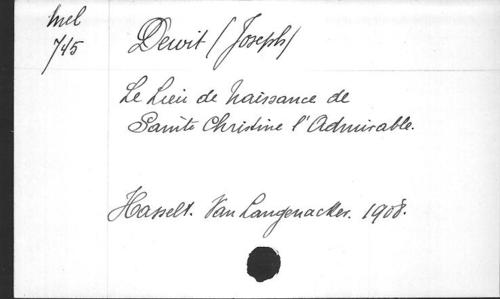 Mel
745
Dewit (Joseph)
Le Lieu de Naissance de
Sainte Christine l'Admirable.
Hasselt. Van Langenacker. 1908.